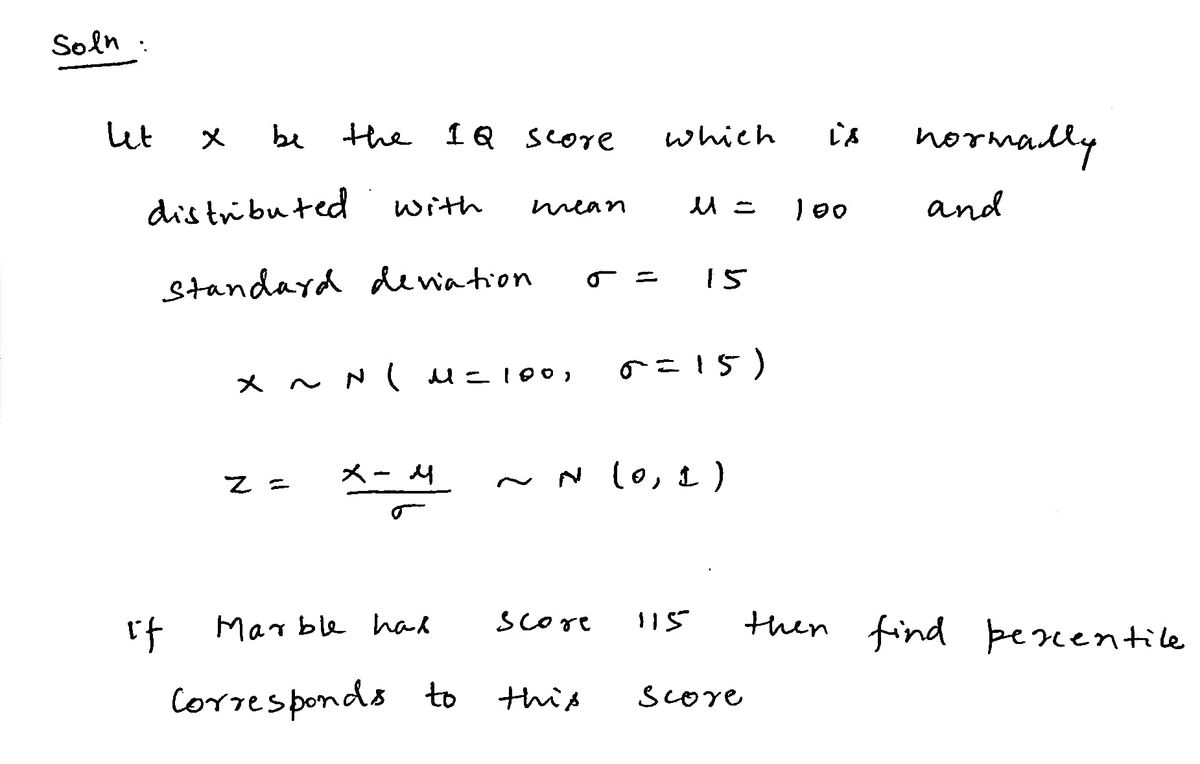 Soln :
Let x be the IQ score which is normally
distributed with mean μ = 100 and
standard deviation σ = 15
x ~ N ( μ = 100, σ = 15 )
z = x - μ / σ ~ N (0, 1 )
if Marble has score 115 then find percentile
Corresponds to this score